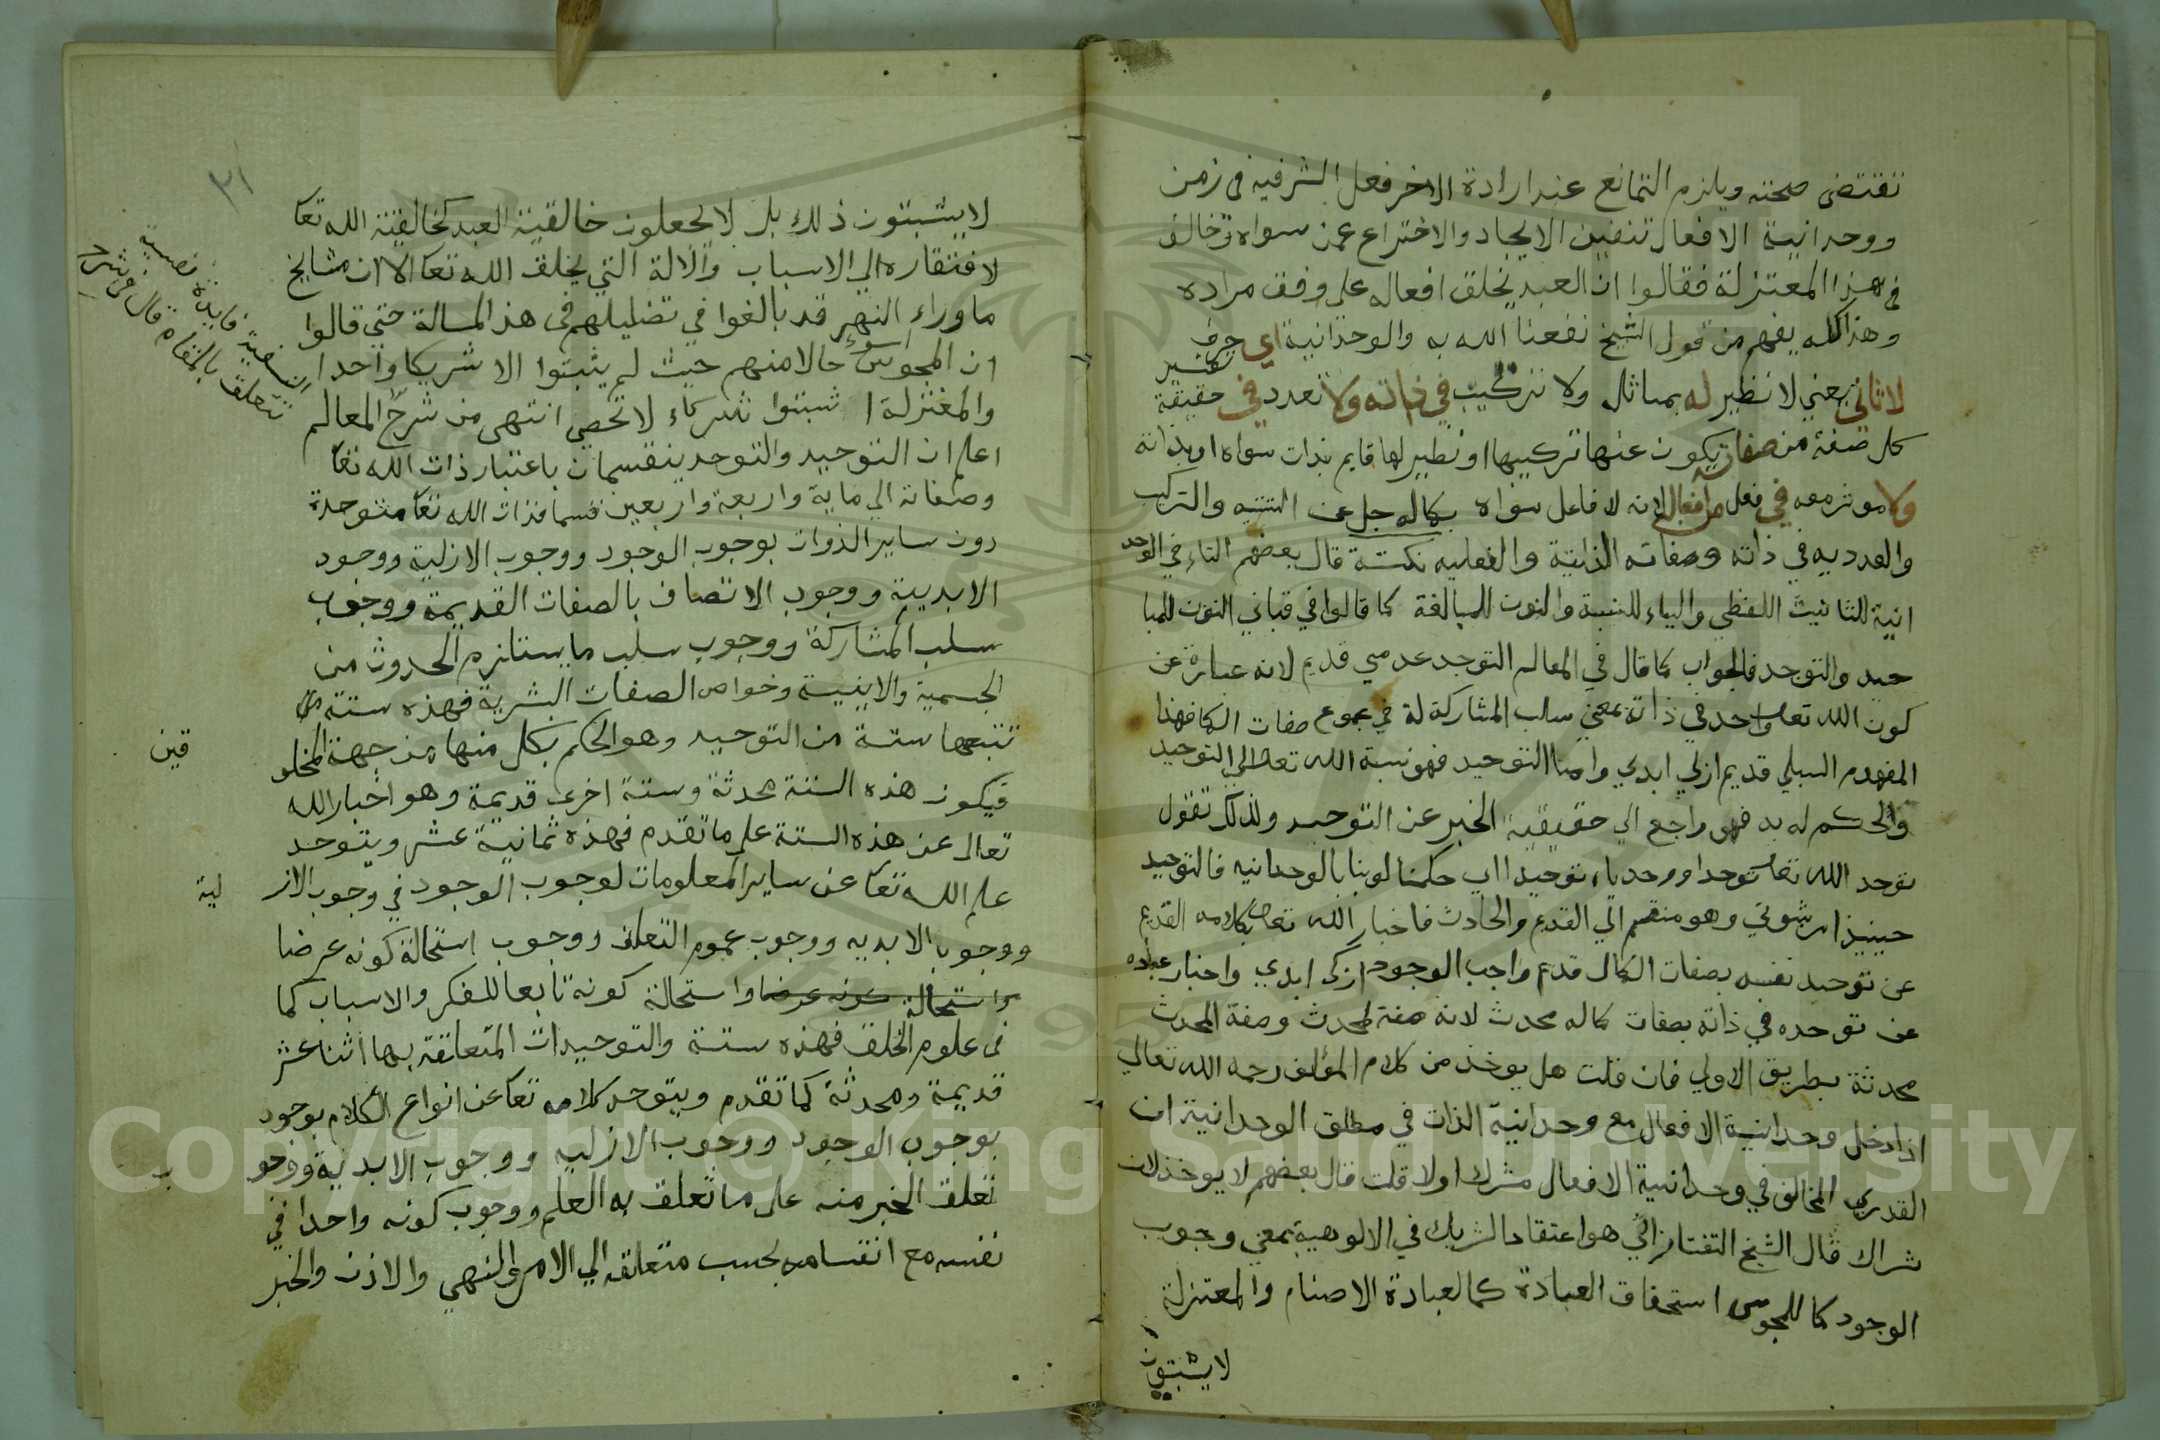 تقتضى صحته ويلزم التمانع عند ارادة الاخر فعل الشر فيه فى زمن
ووحدانية الافعال تنفين الايجاد والاختراع عمن سواه وخالف
فى هذا المعتزلة فقالوا ان العبد يخلق افعاله على وفق مراده
وهذا كله يفهم من قول الشيخ نفعنا الله به والوحدانية اي حرف
تفسير
لا ثانى يعني لا نظير له بمماثل ولا تركيب في ذاته ولا تعدد في حقيقة
كل صفة من صفاته يكون عنها تركيبها او نظير لها قايم بذات سواه او بذاته
ولا موثر معه في فعل من افعاله لانه لا فاعل سواه بكماله جل عن التشبيه والتركيب
والعدديه في ذاته وصفاته الذاتية والفعليه نكتة قال بعضهم التاء في الوحد
انية للتانيث اللفظي والياء للنسبة والنون للمبالغة كما قالوا في قباني النون للمبا
حيد والتوحد فالجواب كما قال في المعالم التوحد عدمي قديم لانه عبارة عن
كون الله تعالى واحد في ذاته بمعني سلب المشاركة له في مجموع صفات الكمال فهذا
المفهوم السلبي قديم ازلي ابدي واما التوحيد فهو نسبة الله تعالى الي التوحيد
والحكم له به فهو راجع الي حقيقية الخبر عن التوحيد ولذلك تقول
توحد الله تعالى توحدا ووحد ياء توحيدا اي حكمنا لربنا بالوحدانيه فالتوحيد
حينيذ امر ثبوتي وهو منقسم الي القديم والحادث فاخبار الله تعالى بكلامه القديم
عن توحيد نفسه بصفات الكمال قديم واجب الوجود ازلي ابدي واخبار عباده
عن توحده في ذاته بصفات كماله محدث لانه صفة لمحدث وصفة المحدث
محدثة بطريق الاولي فان قلت هل يوخذ من كلام المؤلف رحمه الله تعالي
اذا دخل وحدانية الافعال مع وحدانية الذات في مطلق الوحدانية ان
القدري المخالف في وحدانية الافعال مشرك اولا قلت قال بعضهم لا يوخذ لان
شراك قال الشيخ التفتازاني هو اعتقاد الشريك في الالوهية بمعني وجوب
الوجود كما للمجوس استحقاق العبادة كما لعبادة الاصنام والمعتزلة
لا يثبتون
٣١
لا يثبتون ذلك بل لا يجعلون خالقية العبد كخالقية الله تعا
لافتقاره الي الاسباب والآلة التي يخلق الله تعا الا ان مشايخ
ما وراء النهر قد بالغوا في تضليلهم في هذ المسالة حتي قالوا
ان المجوس اسوء حالا منهم حيث لم يثبتوا الا شريكا واحدا
والمعتزلة اثبتوا شركاء لا تحصي انتهى من شرح المعالم
اعلم ان التوحيد والتوحد ينقسمان باعتبار ذات الله تعا
وصفاته الي ماية واربعة واربعين قسما فذات الله تعا متوحدة
دون ساير الذوات بوجوب الوجود ووجوب الازلية ووجود
الابديية ووجوب الاتصاف بالصفات القديمة ووجوب
سلب المشاركة ووجوب سلب ما يستلزم الحدوث من
الجسمية والاينية وخواص الصفات البشرية فهذه ستة
تتبعها ستة من التوحيد وهو الحكم بكل منها من جهة المخلو
قين
فيكون هذه الستة محدثة وستة اخرى قديمة وهو اخبار الله
تعالى عن هذه الستة على ما تقدم فهذه ثمانية عشر ويتوحد
علم الله تعا عن ساير المعلومات لوجوب الوجود في وجوب الاز
لية
ووجوب الابديه ووجوب عموم التعلق ووجوب استحالة كونه عرضا
واستحالة كونه عرضا واستحالة كونه تابعا للفكر والاسباب كما
فى علوم الخلق فهذه ستة والتوحيدات المتعلقة بها اثنا عشر
قديمة ومحدثة كما تقدم ويتوحد كلامه تعا عن انواع الكلام بوجود
بوجوب الوجود ووجوب الازليه ووجوب الابدية ووجو
ب
تعلق الخبر منه على ما تعلق به العلم ووجوب كونه واحدا في
نفسه مع انقسامه بحسب متعلقه الي الامر والنهي والاذن والخبر
فايدة نفيسة
تتعلق بالمقام قال في شرح
النسفية
Copyright © King Saud University